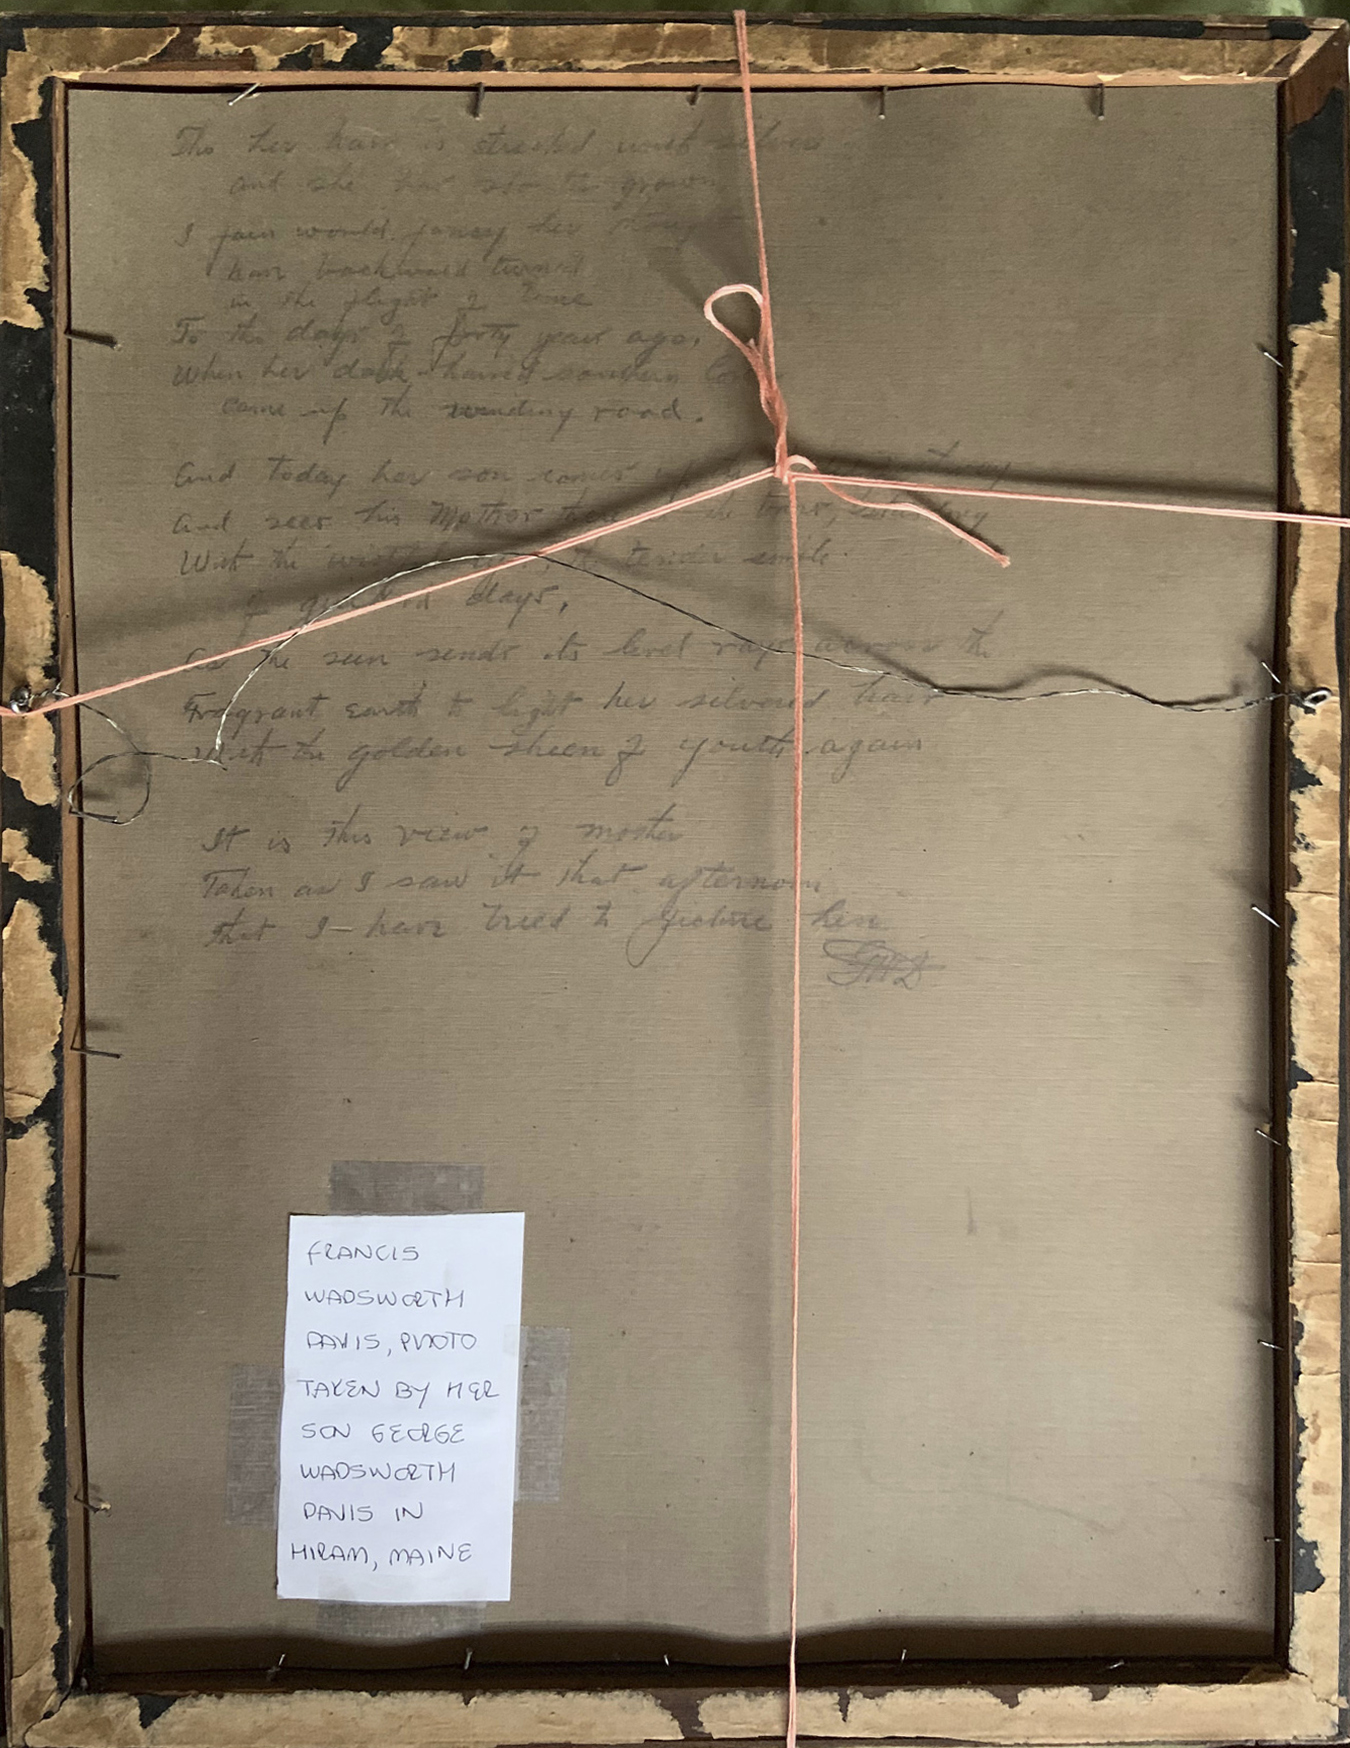 Tho her hair is streaked with silver
and she has grown
I fain would fancy her
have backward turned
in the flight of time
To the days of forty years ago,
When her dark-haired southern
came up the winding road.
And today her son comes
And sees his Mother the standing
With the tender smile
of days,
As the sun sends its level rays across the
Fragrant earth to light her silvered hair
With the golden sheen of youth again
It is this view of mother
Taken as I saw it that afternoon
That I have tried to picture her
GWD
FRANCIS
WADSWORTH
DAVIS, PHOTO
TAKEN BY HER
SON GEORGE
WADSWORTH
DAVIS IN
HIRAM, MAINE